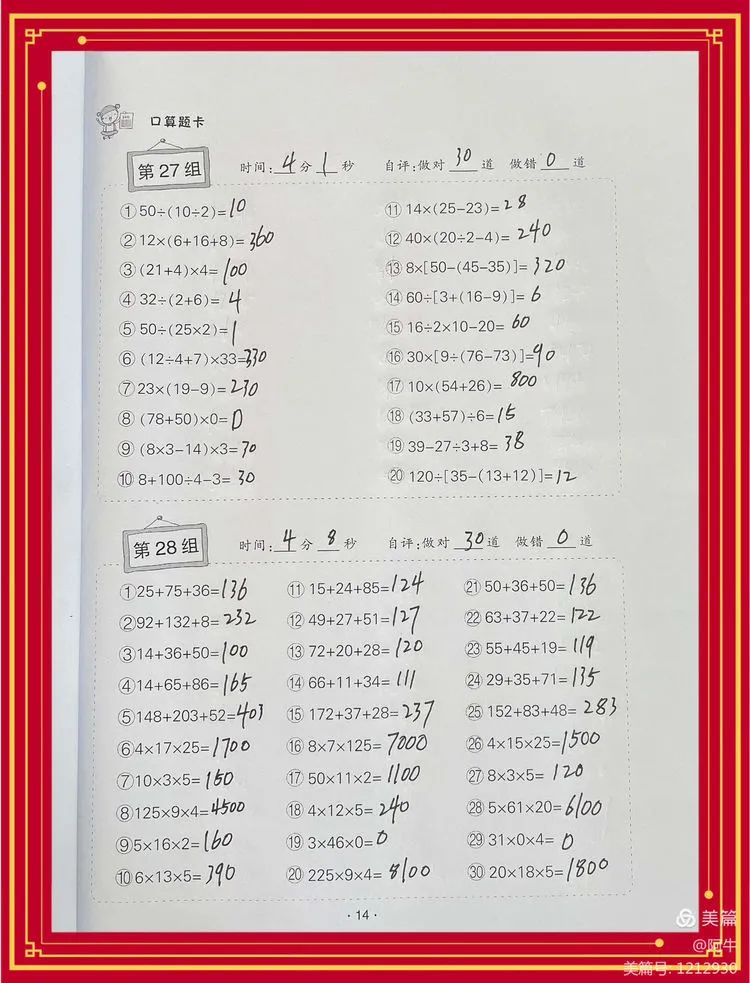 口算题卡
第27组 时间:4分1秒 自评:做对30道 做错0道
①50÷(10÷2)=10
②12×(6+16+8)=360
③(21+4)×4=100
④32÷(2+6)=4
⑤50÷(25×2)=1
⑥(12÷4+7)×33=330
⑦23×(19−9)=230
⑧(78+50)×0=0
⑨(8×3−14)×3=30
⑩8+100÷4−3=30
⑪14×(25−23)=28
⑫40×(20÷2−4)=240
⑬8×[50−(45−35)]=320
⑭60÷[3+(16−9)]=6
⑮16÷2×10−20=60
⑯30×[9÷(76−73)]=90
⑰10×(54+26)=800
⑱(33+57)÷6=15
⑲39−27÷3+8=38
⑳120÷[35−(13+12)]=12
第28组 时间:4分8秒 自评:做对30道 做错0道
①25+75+36=136
②92+132+8=232
③14+36+50=100
④14+65+86=165
⑤148+203+52=403
⑥4×17×25=1700
⑦10×3×5=150
⑧125×9×4=4500
⑨5×16×2=160
⑩6×13×5=390
⑪15+24+85=124
⑫49+27+51=127
⑬72+20+28=120
⑭66+11+34=111
⑮172+37+28=237
⑯8×7×125=7000
⑰50×11×2=1100
⑱4×12×5=240
⑲3×46×0=0
⑳225×9×4=8100
㉑50+36+50=136
㉒63+37+22=122
㉓55+45+19=119
㉔29+35+71=135
㉕152+83+48=283
㉖4×15×25=1500
㉗8×3×5=120
㉘5×61×20=6100
㉙31×0×4=0
㉚20×18×5=1800
·14·
美篇
@阿牛
美篇号: 1212930